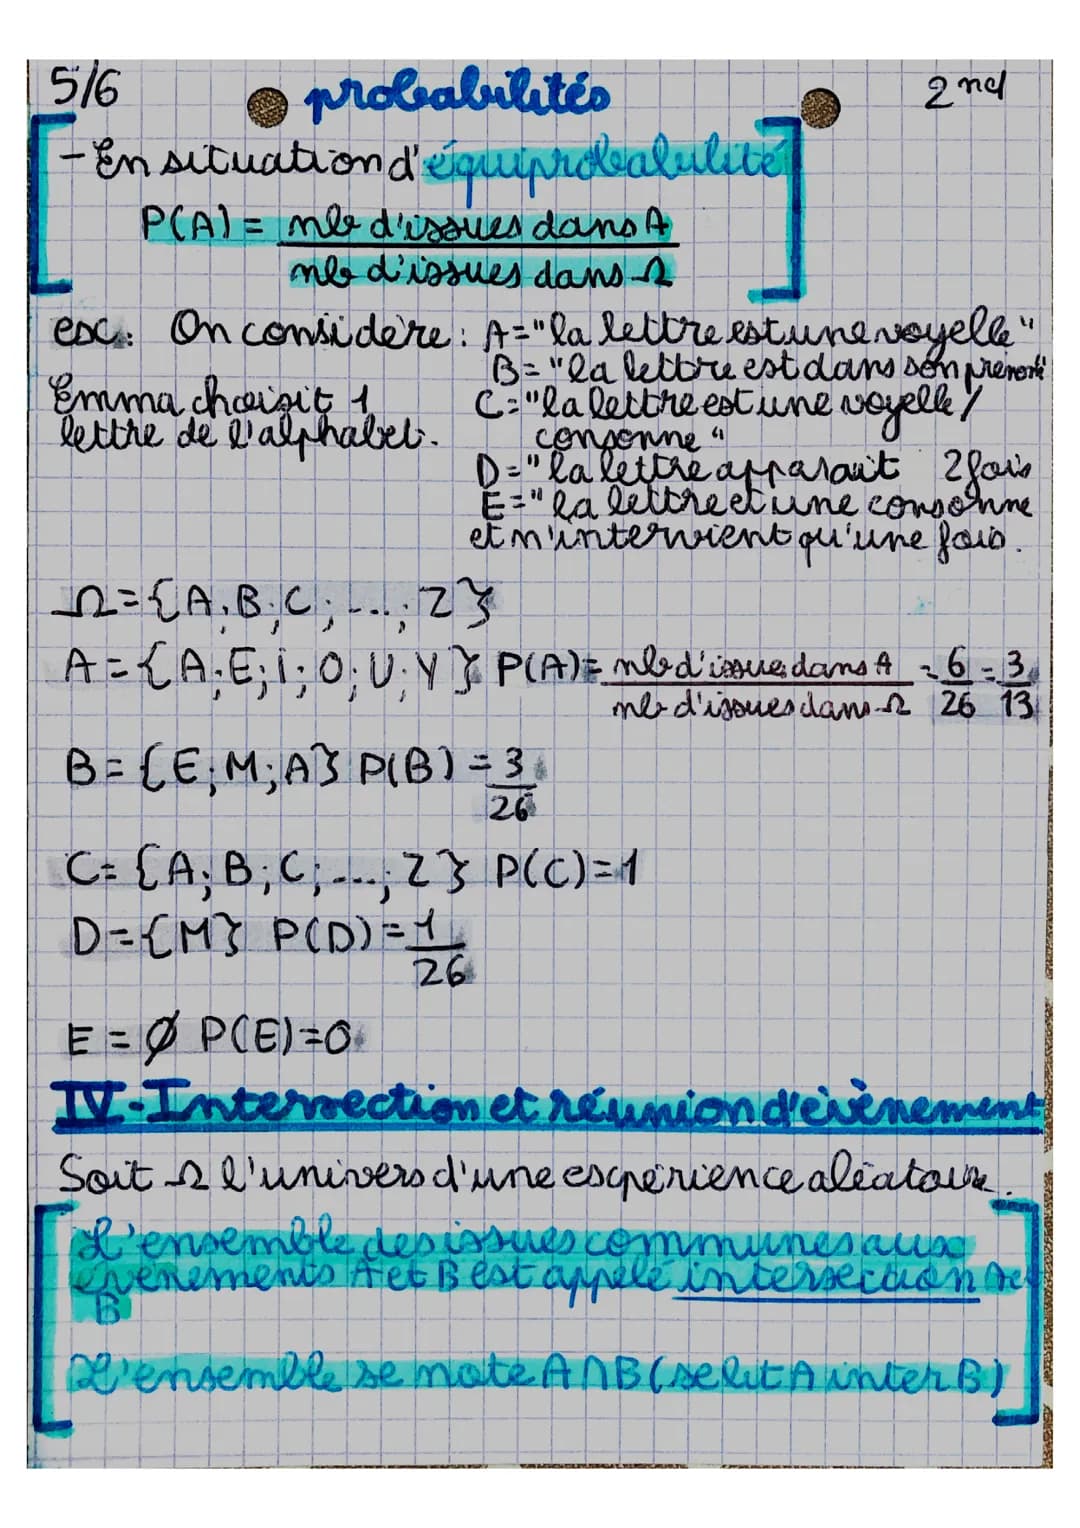 5/6 probabilités 2nd
- En situation d'équiprobabilité
P(A) = nb d'issues dans A
nb d'issues dans Ω
ex: On considère : A="la lettre est une voyelle"
B="la lettre est dans son prénom"
Emma choisit 1 C="la lettre est une voyelle/
lettre de l'alphabet. consonne"
D="la lettre apparait 2 fois
E="la lettre et une consonne
et n'intervient qu'une fois.
Ω={A;B;C;....;Z}
A={A;E;I;O;U;Y} P(A)= nb d'issues dans A = 6 = 3
nb d'issues dans Ω 26 13
B={E;M;A} P(B)=3
26
C={A;B;C;....;Z} P(C)=1
D={M} P(D)=1
26
E=Ø P(E)=0
IV-Intersection et réunion d'évènement
Soit Ω l'univers d'une expérience aléatoire.
L'ensemble des issues communes aux
évenements A et B est appelé intersection A et
B
L'ensemble se note A∩B (se lit A inter B)